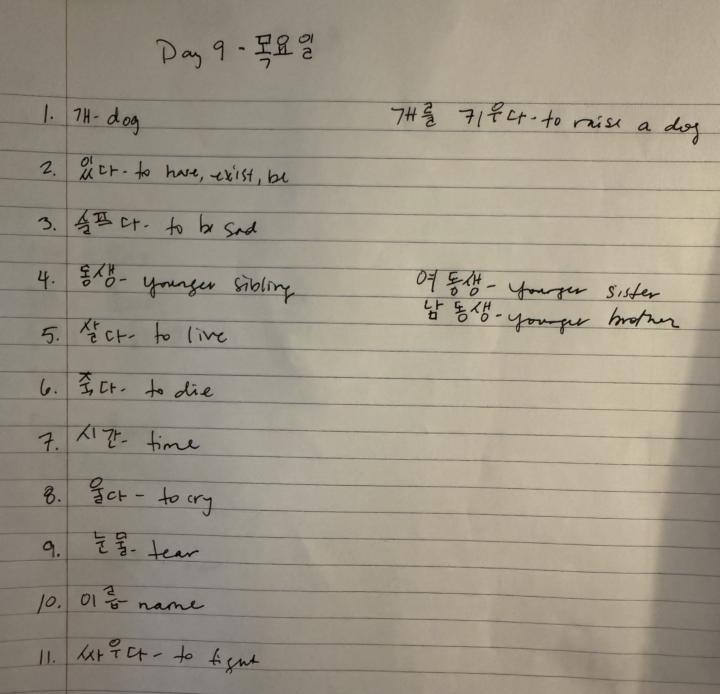 Day 9 - 목요일
1. 개- dog 개를 키우다- to raise a dog
2. 있다- to have, exist, be
3. 슬프다- to be sad
4. 동생- younger sibling 여동생- younger sister
남동생- younger brother
5. 살다- to live
6. 죽다- to die
7. 시간- time
8. 울다- to cry
9. 눈물- tear
10. 이름 name
11. 싸우다- to fight